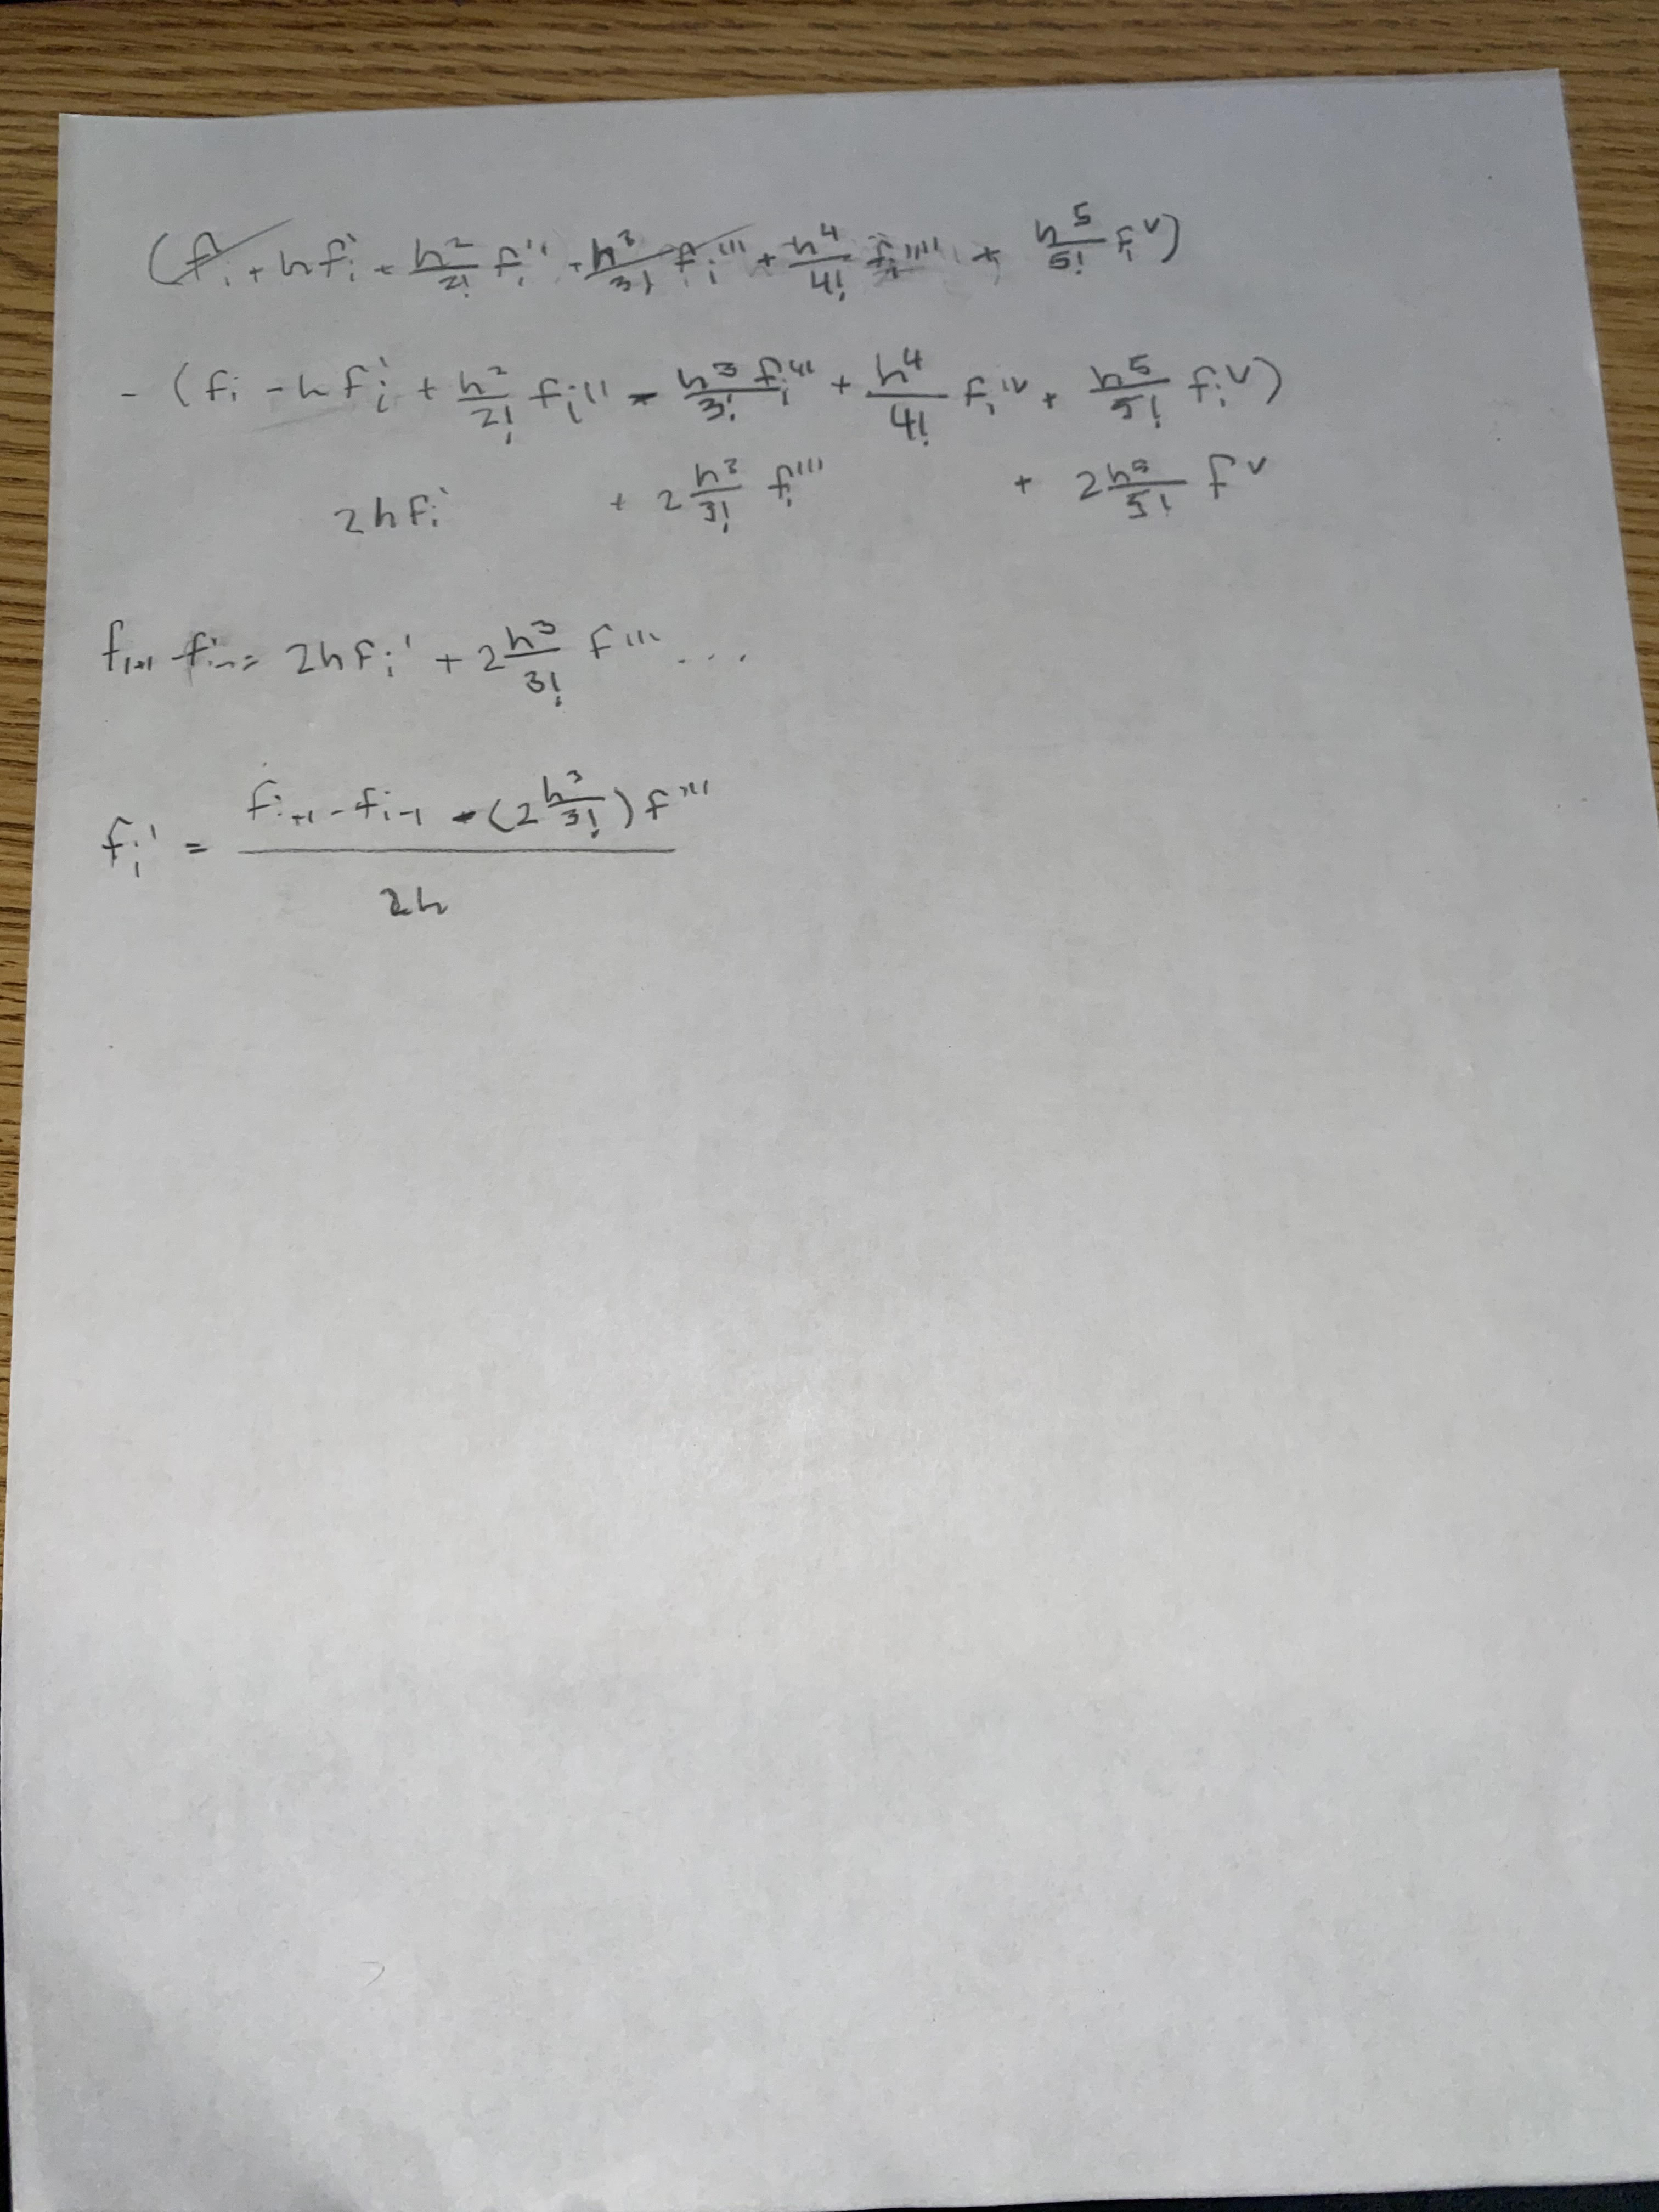 (fᵢ + hfᵢ' + h²/2! fᵢ'' + h³/3! fᵢ''' + h⁴/4! fᵢ'''' + h⁵/5! fᵢⱽ)
- (fᵢ - hfᵢ' + h²/2! fᵢ'' - h³/3! fᵢ''' + h⁴/4! fᵢᴵⱽ + h⁵/5! fᵢⱽ)
2hfᵢ' + 2 h³/3! fᵢ''' + 2 h⁵/5! fⱽ
fᵢ₊₁ - fᵢ₋₁ = 2hfᵢ' + 2 h³/3! f''' ...
fᵢ' = (fᵢ₊₁ - fᵢ₋₁ - (2 h³/3!) f''') / 2h